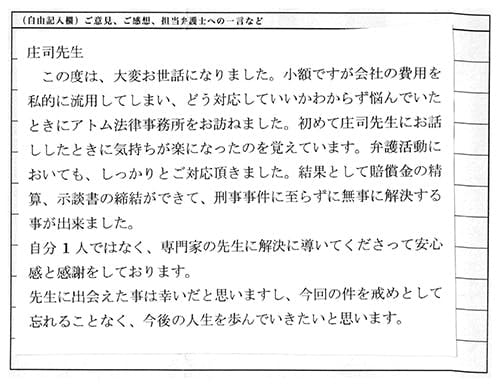 (自由記入欄)ご意見、ご感想、担当弁護士への一言など
庄司先生
この度は、大変お世話になりました。小額ですが会社の費用を
私的に流用してしまい、どう対応していいかわからず悩んでいた
ときにアトム法律事務所をお訪ねました。初めて庄司先生にお話
ししたときに気持ちが楽になったのを覚えています。弁護活動に
おいても、しっかりとご対応頂きました。結果として賠償金の精
算、示談書の締結ができて、刑事事件に至らずに無事に解決する
事が出来ました。
自分1人ではなく、専門家の先生に解決に導いてくださって安心
感と感謝をしております。
先生に出会えた事は幸いだと思いますし、今回の件を戒めとして
忘れることなく、今後の人生を歩んでいきたいと思います。